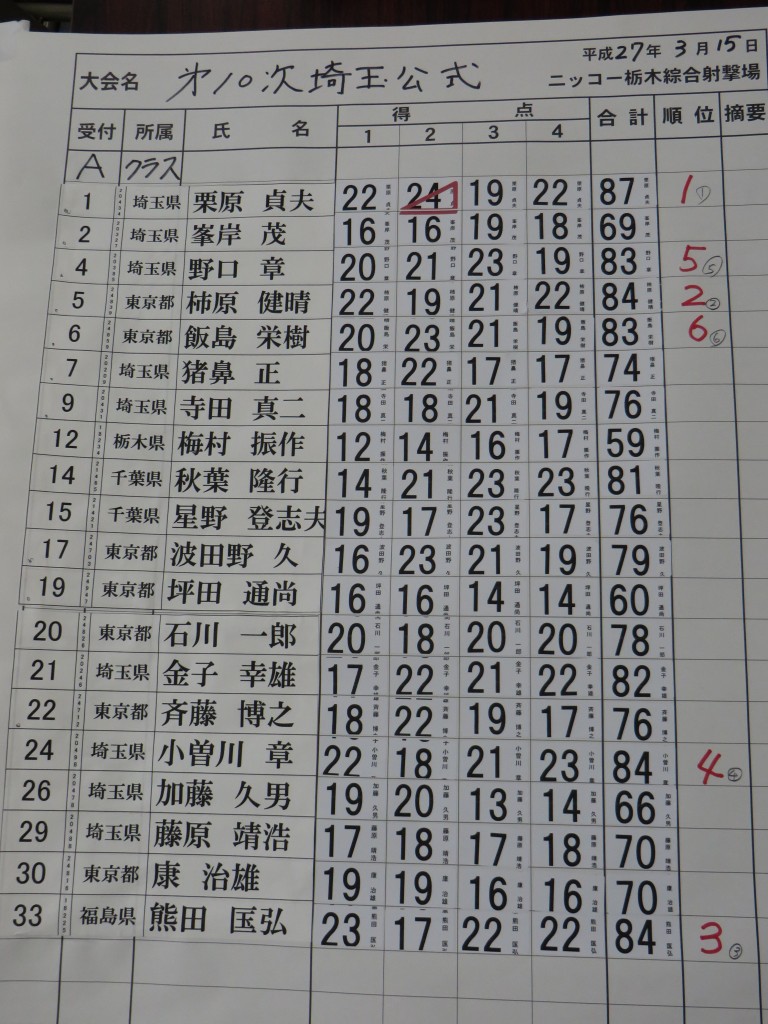 平成27年 3月 15日
大会名 才10次埼玉公式 ニッコー栃木綜合射撃場
受付 所属 氏名 得点 合計 順位 摘要
1 2 3 4
A クラス
1 埼玉県 栗原 貞夫 22 24 19 22 87 1 ①
2 埼玉県 峯岸 茂 16 16 19 18 69
4 埼玉県 野口 章 20 21 23 19 83 5 ⑤
5 東京都 柿原 健晴 22 19 21 22 84 2 ②
6 東京都 飯島 栄樹 20 23 21 19 83 6 ⑥
7 埼玉県 猪鼻 正 18 22 17 17 74
9 埼玉県 寺田 真二 18 18 21 19 76
12 栃木県 梅村 振作 12 14 16 17 59
14 千葉県 秋葉 隆行 14 21 23 23 81
15 千葉県 星野 登志夫 19 17 23 17 76
17 東京都 波田野 久 16 23 21 19 79
19 東京都 坪田 通尚 16 16 14 14 60
20 東京都 石川 一郎 20 18 20 20 78
21 埼玉県 金子 幸雄 17 22 21 22 82
22 東京都 斉藤 博之 18 22 19 17 76
24 埼玉県 小曽川 章 22 18 21 23 84 4 ④
26 埼玉県 加藤 久男 19 20 13 14 66
29 埼玉県 藤原 靖浩 17 18 17 18 70
30 東京都 康 治雄 19 19 16 16 70
33 福島県 熊田 匡弘 23 17 22 22 84 3 ③